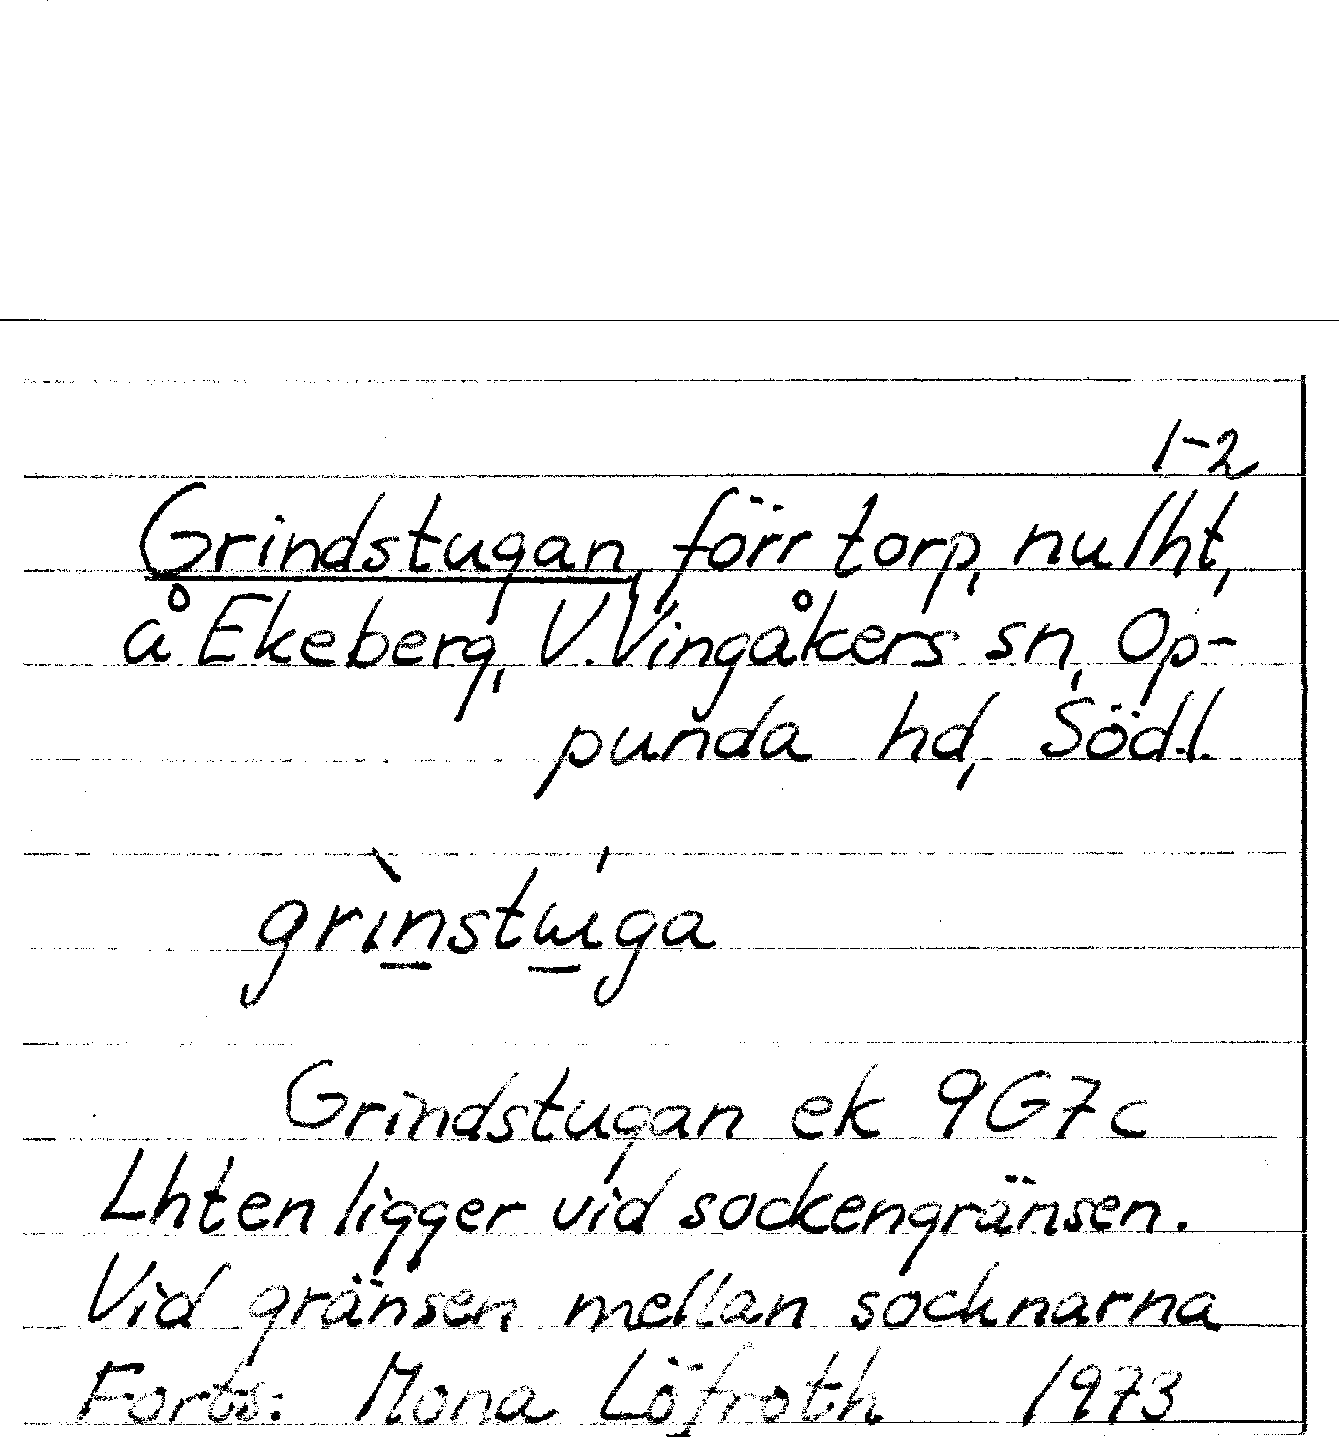 1-2
Grindstugan, förr torp, nu lht,
å Ekeberg, V. Vingåkers sn, Op-
punda hd, Södl.
grìnstúga
Grindstugan ek 9G7c
Lhten ligger vid sockengränsen.
Vid gränsen mellan socknarna
Forts: Mona Löfroth 1973